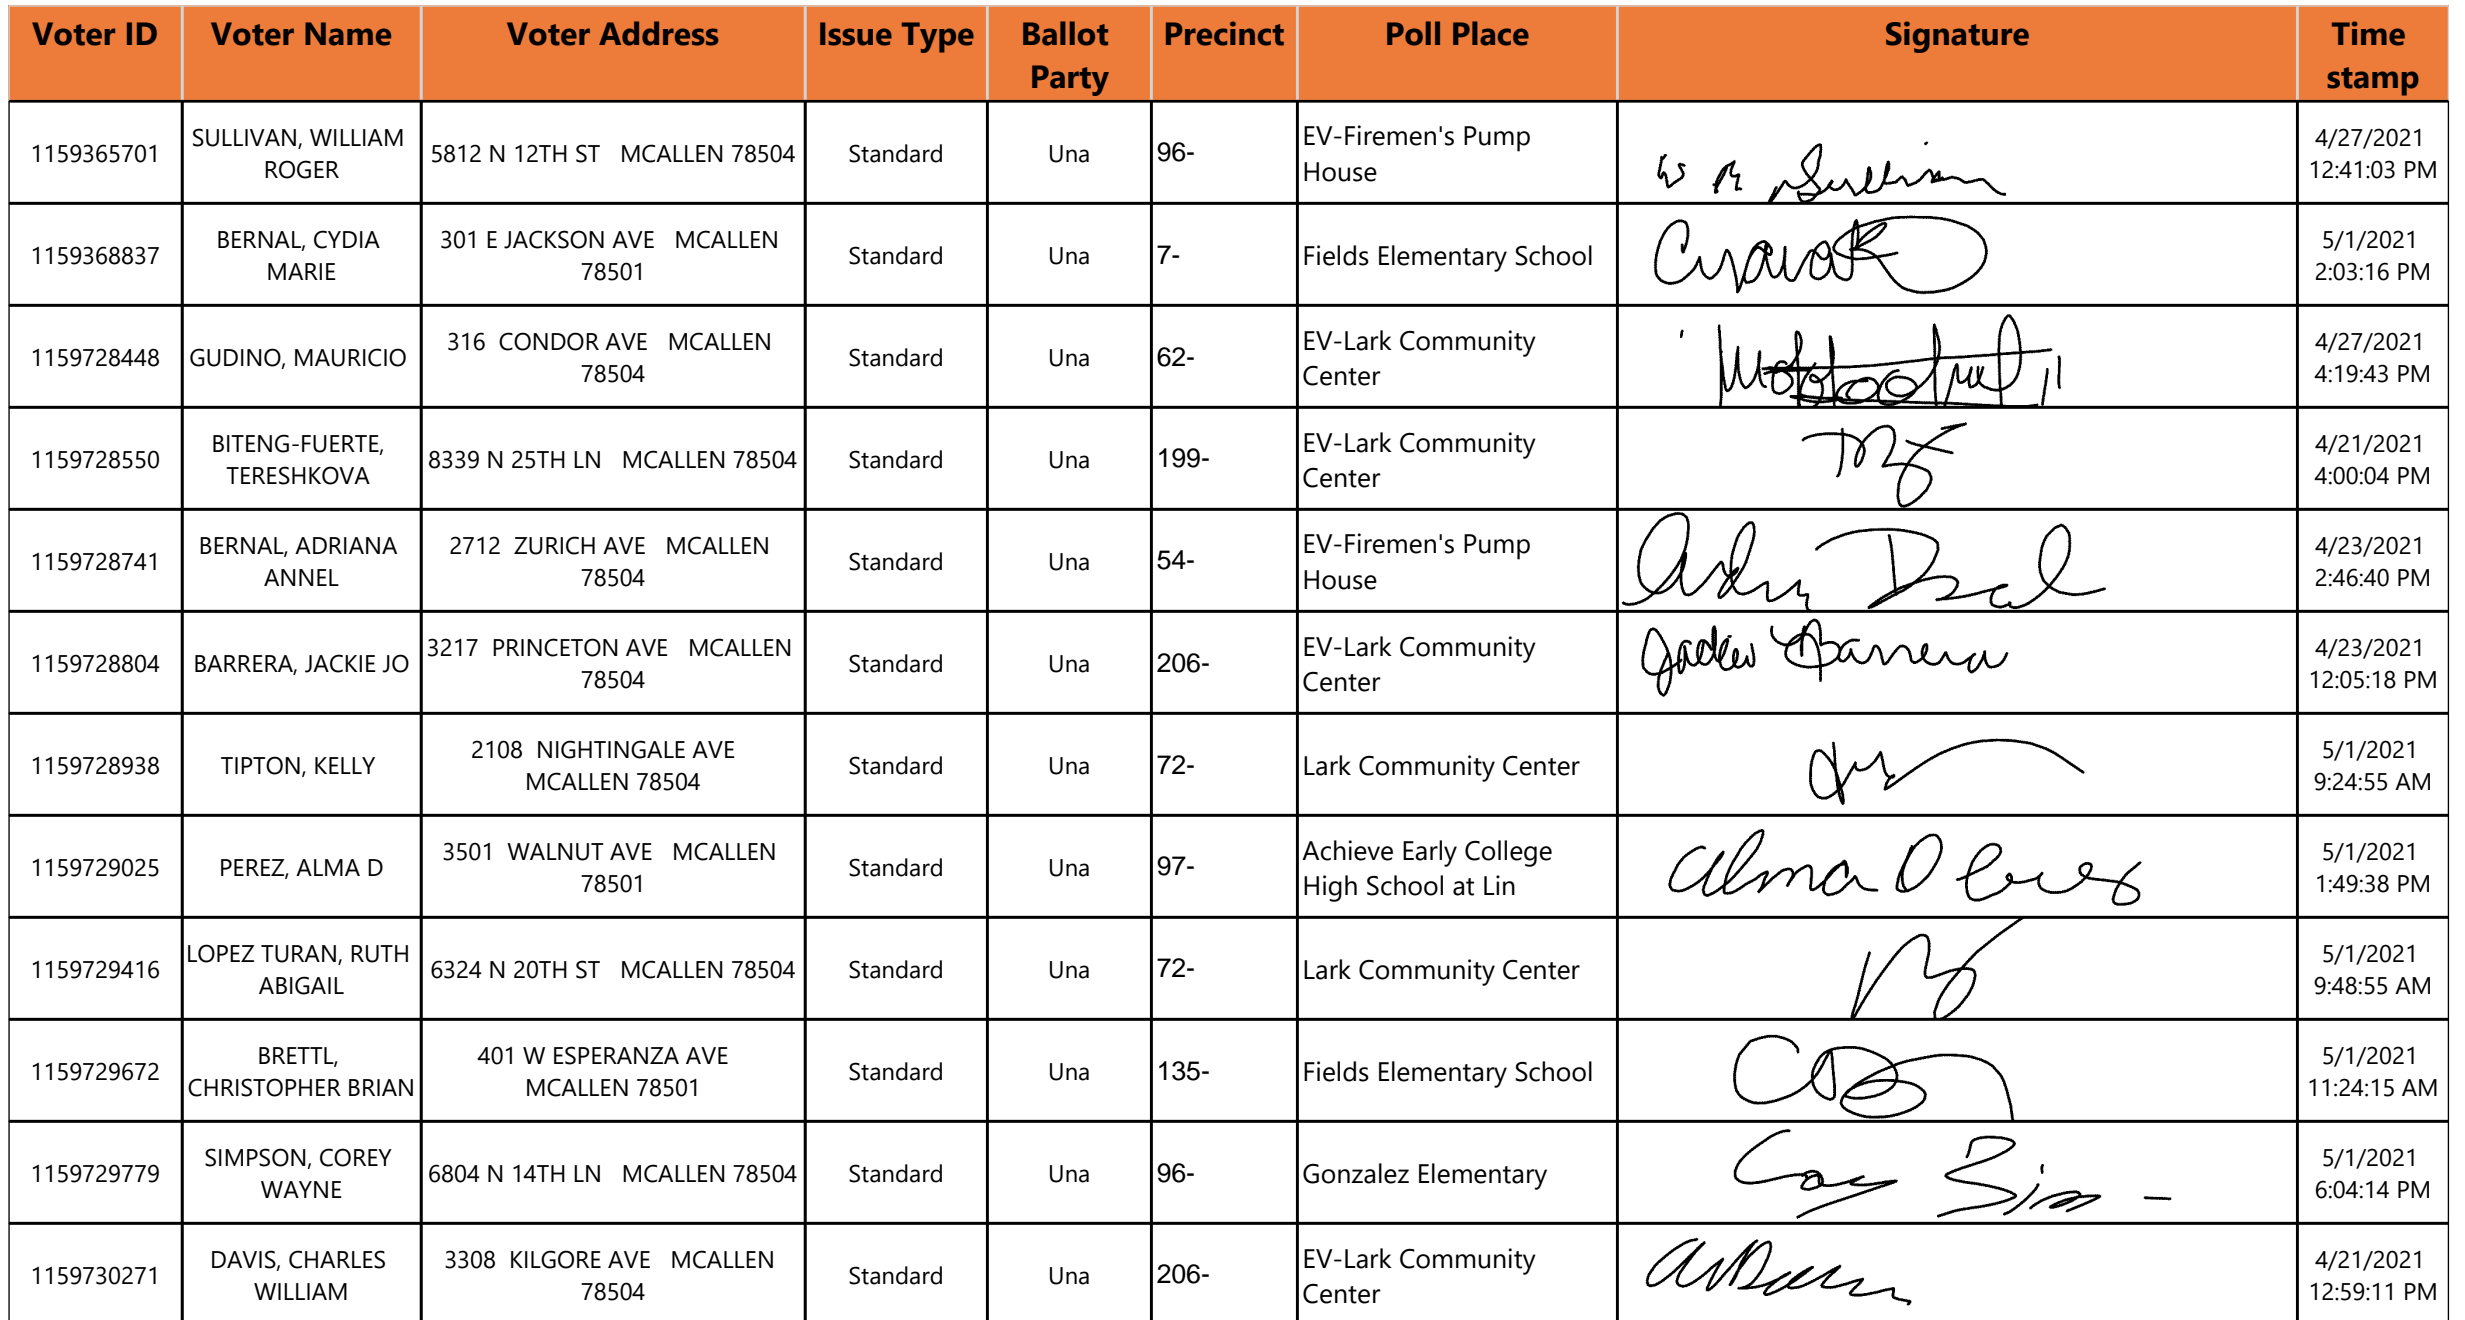 Voter ID Voter Name Voter Address Issue Type Ballot Party Precinct Poll Place Signature Time stamp
1159365701 SULLIVAN, WILLIAM ROGER 5812 N 12TH ST MCALLEN 78504 Standard Una 96- EV-Firemen's Pump House W R Sullivan 4/27/2021 12:41:03 PM
1159368837 BERNAL, CYDIA MARIE 301 E JACKSON AVE MCALLEN 78501 Standard Una 7- Fields Elementary School 5/1/2021 2:03:16 PM
1159728448 GUDINO, MAURICIO 316 CONDOR AVE MCALLEN 78504 Standard Una 62- EV-Lark Community Center 4/27/2021 4:19:43 PM
1159728550 BITENG-FUERTE, TERESHKOVA 8339 N 25TH LN MCALLEN 78504 Standard Una 199- EV-Lark Community Center 4/21/2021 4:00:04 PM
1159728741 BERNAL, ADRIANA ANNEL 2712 ZURICH AVE MCALLEN 78504 Standard Una 54- EV-Firemen's Pump House 4/23/2021 2:46:40 PM
1159728804 BARRERA, JACKIE JO 3217 PRINCETON AVE MCALLEN 78504 Standard Una 206- EV-Lark Community Center Jackie Barrera 4/23/2021 12:05:18 PM
1159728938 TIPTON, KELLY 2108 NIGHTINGALE AVE MCALLEN 78504 Standard Una 72- Lark Community Center 5/1/2021 9:24:55 AM
1159729025 PEREZ, ALMA D 3501 WALNUT AVE MCALLEN 78501 Standard Una 97- Achieve Early College High School at Lin Alma D Perez 5/1/2021 1:49:38 PM
1159729416 LOPEZ TURAN, RUTH ABIGAIL 6324 N 20TH ST MCALLEN 78504 Standard Una 72- Lark Community Center 5/1/2021 9:48:55 AM
1159729672 BRETTL, CHRISTOPHER BRIAN 401 W ESPERANZA AVE MCALLEN 78501 Standard Una 135- Fields Elementary School 5/1/2021 11:24:15 AM
1159729779 SIMPSON, COREY WAYNE 6804 N 14TH LN MCALLEN 78504 Standard Una 96- Gonzalez Elementary 5/1/2021 6:04:14 PM
1159730271 DAVIS, CHARLES WILLIAM 3308 KILGORE AVE MCALLEN 78504 Standard Una 206- EV-Lark Community Center 4/21/2021 12:59:11 PM